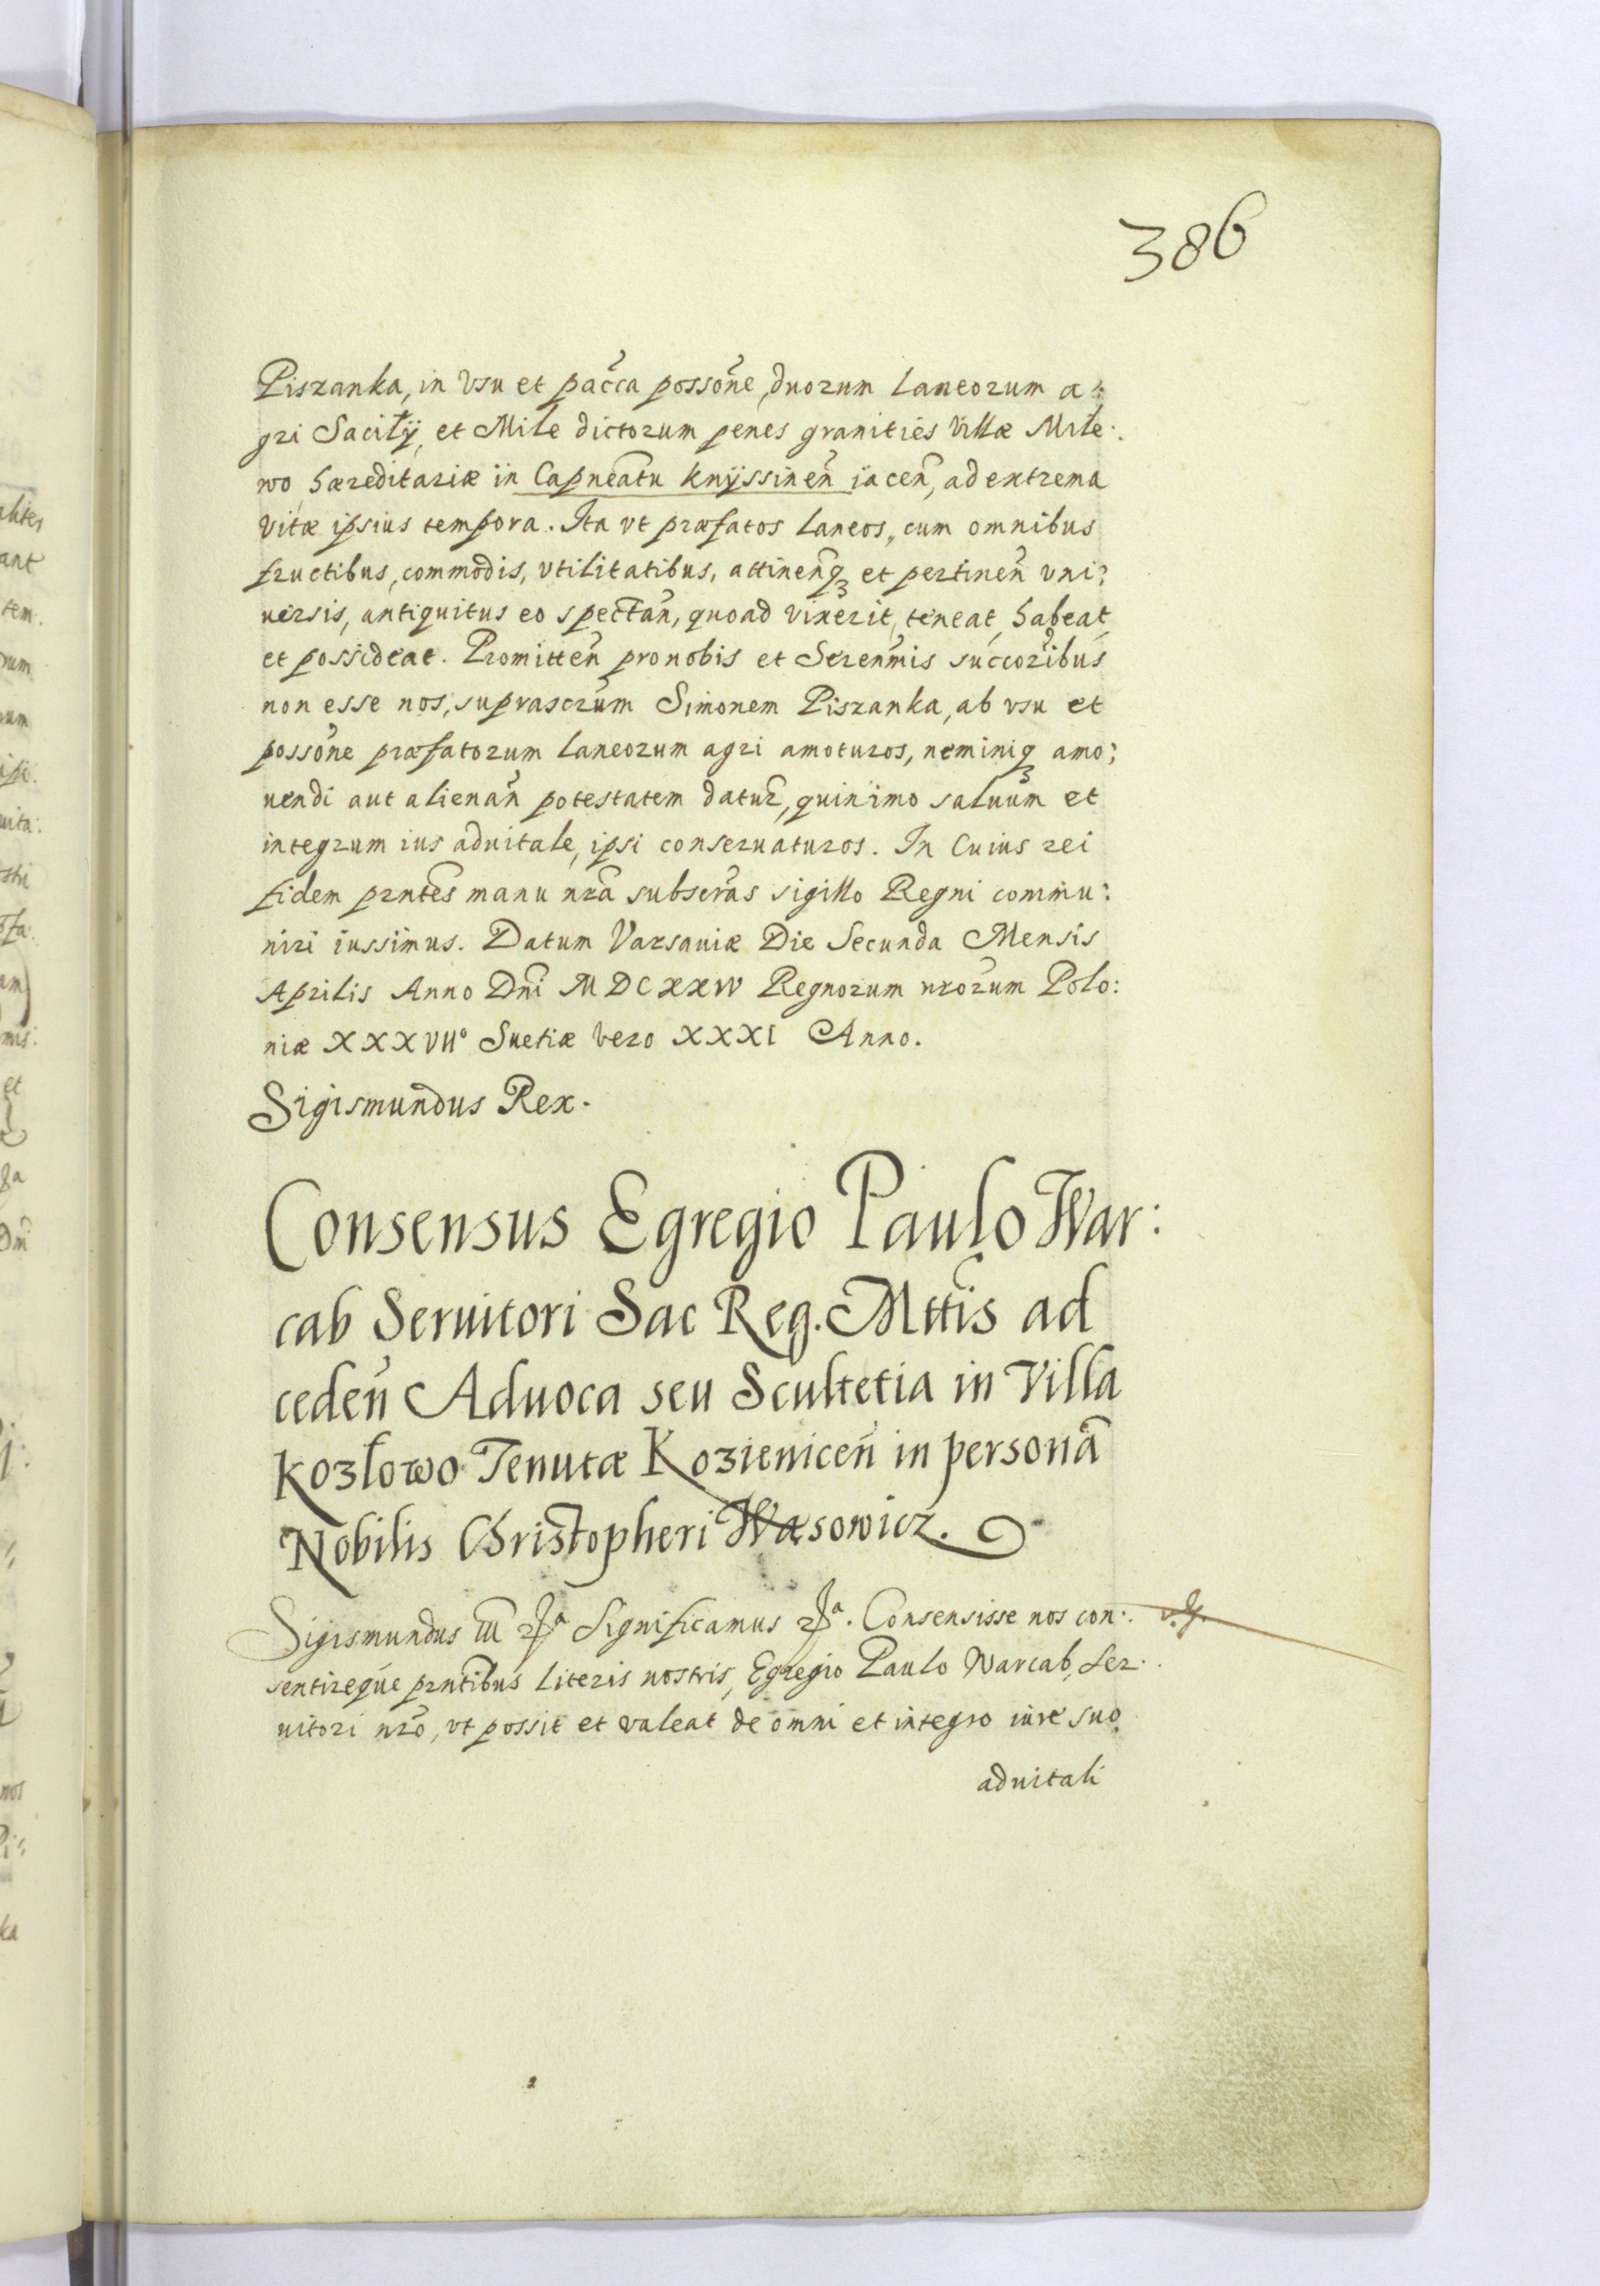 386
Piszanka, in Vsu et pacca possone, duorum Laneorum a:
gri Saciłÿ, et Mile dictorum penes granities Villæ Mile:
wo, hæreditariæ in Capneatu knÿssinen iacen, ad extrema
vitæ ipsius tempora. Ita vt præfatos Laneos, cum omnibus
fructibus, commodis, vtilitatibus, attinenq3 et pertinen vni:
uersis, antiquitus eo spectan, quoad vixerit, teneat, habeat,
et possideat. Promitten pro nobis et Serenmis succoribus
non esse nos, suprascrum Simonem Piszanka, ab vsu et
possone præfatorum laneorum agri amoturos, neminiq3 amo:
uendi aut alienan potestatem datur, quinimo saluum et
integrum ius aduitale, ipsi conseruaturos. In Cuius rei
fidem prntes manu nra subscras sigillo Regni commu:
niri iussimus. Datum Varsauiæ Die Secunda Mensis
Aprilis Anno Dni MDCXXIV Regnorum nrorum Polo:
niæ XXXVIIº Suetiæ vero XXXI Anno.
Sigismundus Rex.
Consensus Egregio Paulo War:
cab Seruitori Sac Reg. Mttis ad
ceden Aduoca seu Scultetia in Villa
Kozłowo Tenutæ Kozienicen in persona
Nobilis Christopheri Wąsowicz.
Sigismundus III Significamus Consensisse nos con:
sentireque prntibus literis nostris, Egregio Paulo Warcab, Ser:
uitori nro, vt possit et valeat de omni et integro iure suo
aduitali